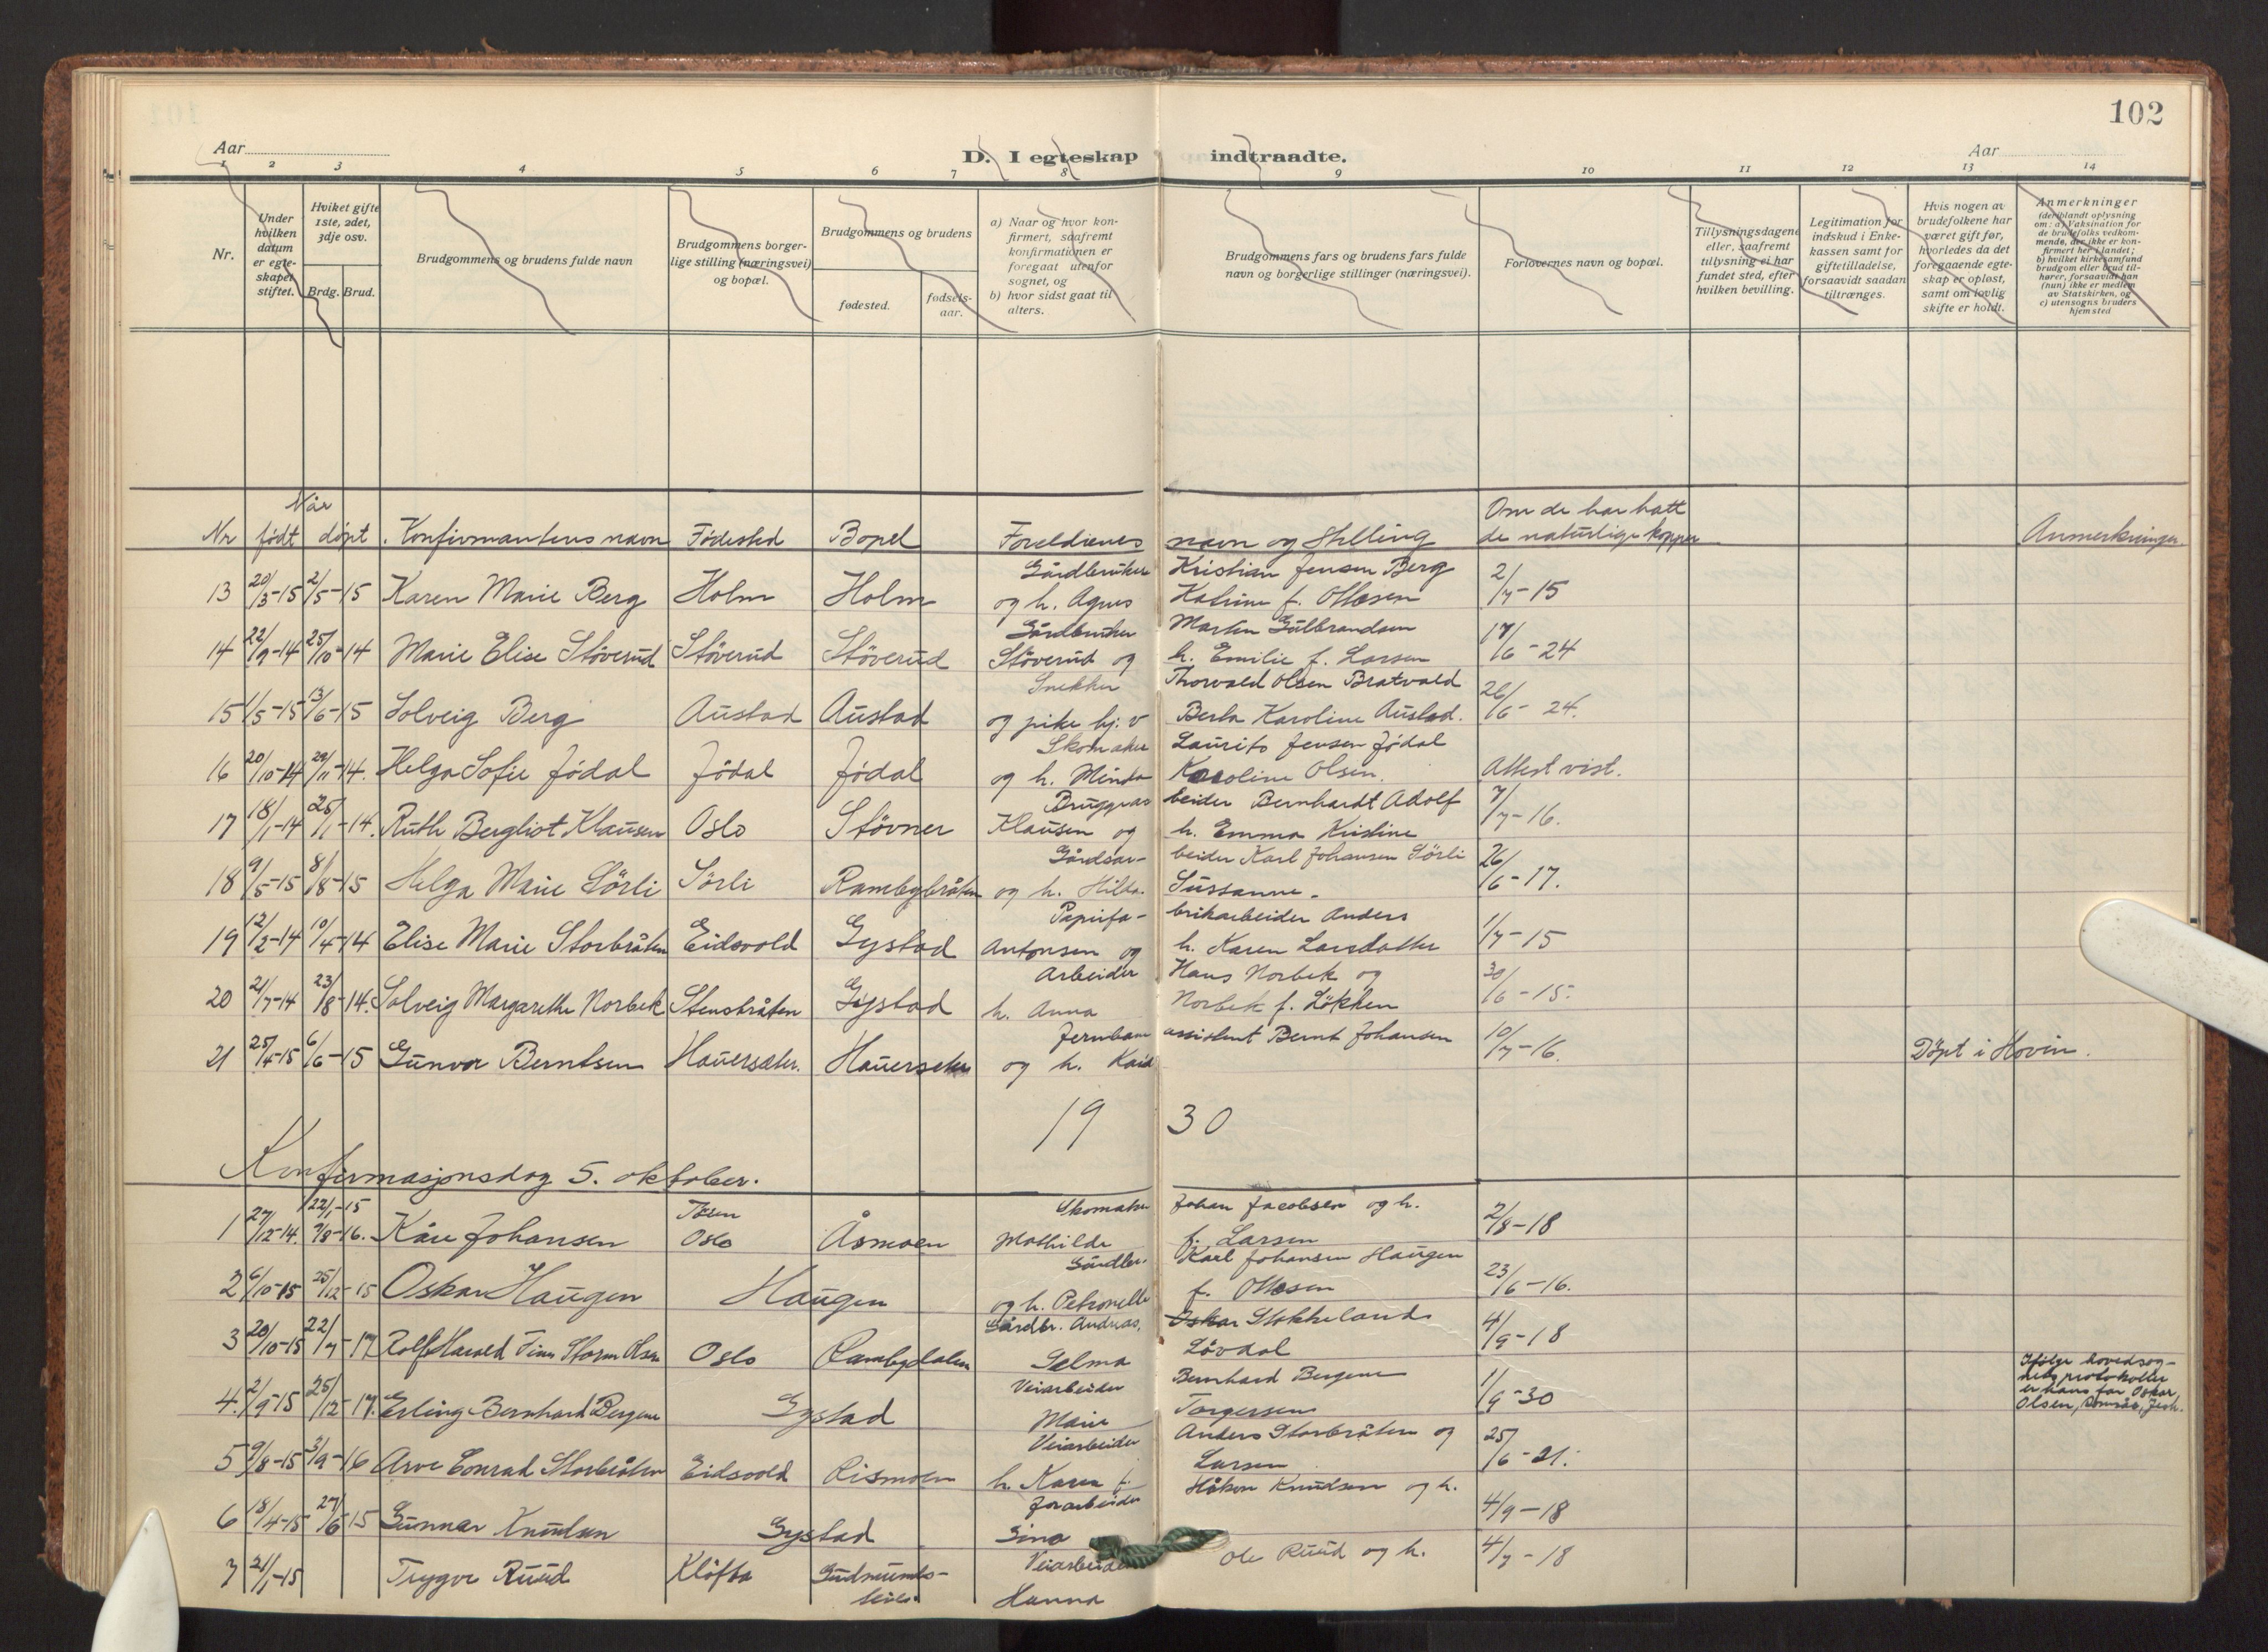 102
Aar
D. I egteskap indtraadte.
Aar
1 2 3 4 5 6 7 8 9 10 11 12 13 14
Nr.
Under hvilken datum er egteskapet stiftet.
Hviket gifte 1ste, 2det, 3dje osv.
Brdg. Brud.
Brudgommens og brudens fulde navn
Brudgommens borgerlige stilling (næringsvei) og bopæl.
Brudgommens og brudens
fødested.
fødselsaar.
a) Naar og hvor konfirmert, saafremt konfirmationen er foregaat utenfor sognet, og
b) hvor sidst gaat til alters.
Brudgommens fars og brudens fars fulde navn og borgerlige stillinger (næringsvei).
Forlovernes navn og bopæl.
Tillysningsdagene eller, saafremt tillysning ei har fundet sted, efter hvilken bevilling.
Legitimation for indskud i Enkekassen samt for giftetilladelse, forsaavidt saadan tiltrænges.
Hvis nogen av brudefolkene har været gift før, hvorledes da det foregaaende egteskap er opløst, samt om lovlig skifte er holdt.
Anmerkninger
(deriblandt oplysning om: a) Vaksination for de brudefolks vedkommende, der ikke er konfirmert her i landet;
b) hvilket kirkesamfund brudgom eller brud tilhører, forsaavidt han (hun) ikke er medlem av Statskirken, og
c) utensogns bruders hjemsted
Når
Nr født døpt. Konfirmantens navn Fødested Bopel Foreldrenes navn og Stilling Om de har hatt de naturlige kopper Anmerkninger.
Gårdbruker Kristian Jensen Berg
13 20/3-15 2/5-15 Karen Marie Berg Holm Holm og h. Agnes Katrine f. Ottesen 2/7-15
Gårdbruker Martin Gulbrandsen
14 22/9-14 25/10-14 Marie Elise Støverud Støverud Støverud Støverud og h. Emilie f. Larsen 17/6-24
Snekker Thorvald Olsen Bratvold
15 1/5-15 13/6-15 Solveig Berg Austad Austad og pike hj. v Berta Karoline Austad. 26/6-24.
Skomaker Laurits Jensen Jødal
16 20/10-14 29/11-14. Helga Sofie Jødal Jødal Jødal og h. Minda Karoline Olsen. Attest vist.
Bryggeriarbeider Bernhardt Adolf
17 18/1-14 25/1-14. Ruth Bergliot Klausen Oslo Støvner Klausen og h. Emma Kristine 7/7-16.
Gårdsarbeider Karl Johansen Sørli
18 9/5-15 8/8-15 Helga Marie Sørli Sørli Rambybråten og h. Hilda Sussanne. 26/6-17.
Papirfabrikarbeider Anders
19 12/2-14 10/4-14 Elise Marie Storbråten Eidsvold Gystad Antonsen og h. Karen Larsdatter 1/7-15
Arbeider Hans Norbek og
20 21/7-14 23/8-14. Solveig Margarethe Norbek Stensbråten Gystad h. Anna Norbek f. Løkken 30/6-15.
Jernbaneassistent Bernt Johansen
21 25/4-15 6/6-15 Gunvor Berntsen Hauersæter. Hauerseter og h. 10/7-16. Døpt i Hovin.
1930
Konfirmasjonsdag 5. oktober.
22/1-15 Tøsen Skomaker Johan Jacobsen og h.
1 27/12-14. 9/8-16. Kåre Johansen Oslo Åsmoen Mathilde f. Larsen 2/8-18
Gårdbr. Karl Johansen Haugen
2 6/10-15 25/12-15 Oskar Haugen Haugen og h. Petronelle f. Ottesen 23/6-16.
Gårdbr. Andreas, Oskar Stokkelands
3 20/10-15 22/7-17 Rolf Harald Finn Storm Olsen Oslo Rambydalen Selma Løvdal 4/9-18
Ifølge hovedsognets protokoller er hans far Oskar Olsen,
Veiarbeider Bernhard Bergene
4. 2/9-15 25/12-17. Erling Bernhard Bergene Gystad Marie Torgersen 1/9-30
Veiarbeider Anders Storbråten og
5 9/8-15 3/9-16 Arve Conrad Storbråten Eidsvold Rismoen h. Karen f. Larsen 25/6-21.
Jordarbeider Håkon Knudsen og h.
6 18/4-15 27/6-15 Gunnar Knudsen Gystad Gina 4/9-18
Veiarbeider Ole Ruud og h.
7 21/1-15 Trygve Ruud Kløfta Hanna 4/7-18